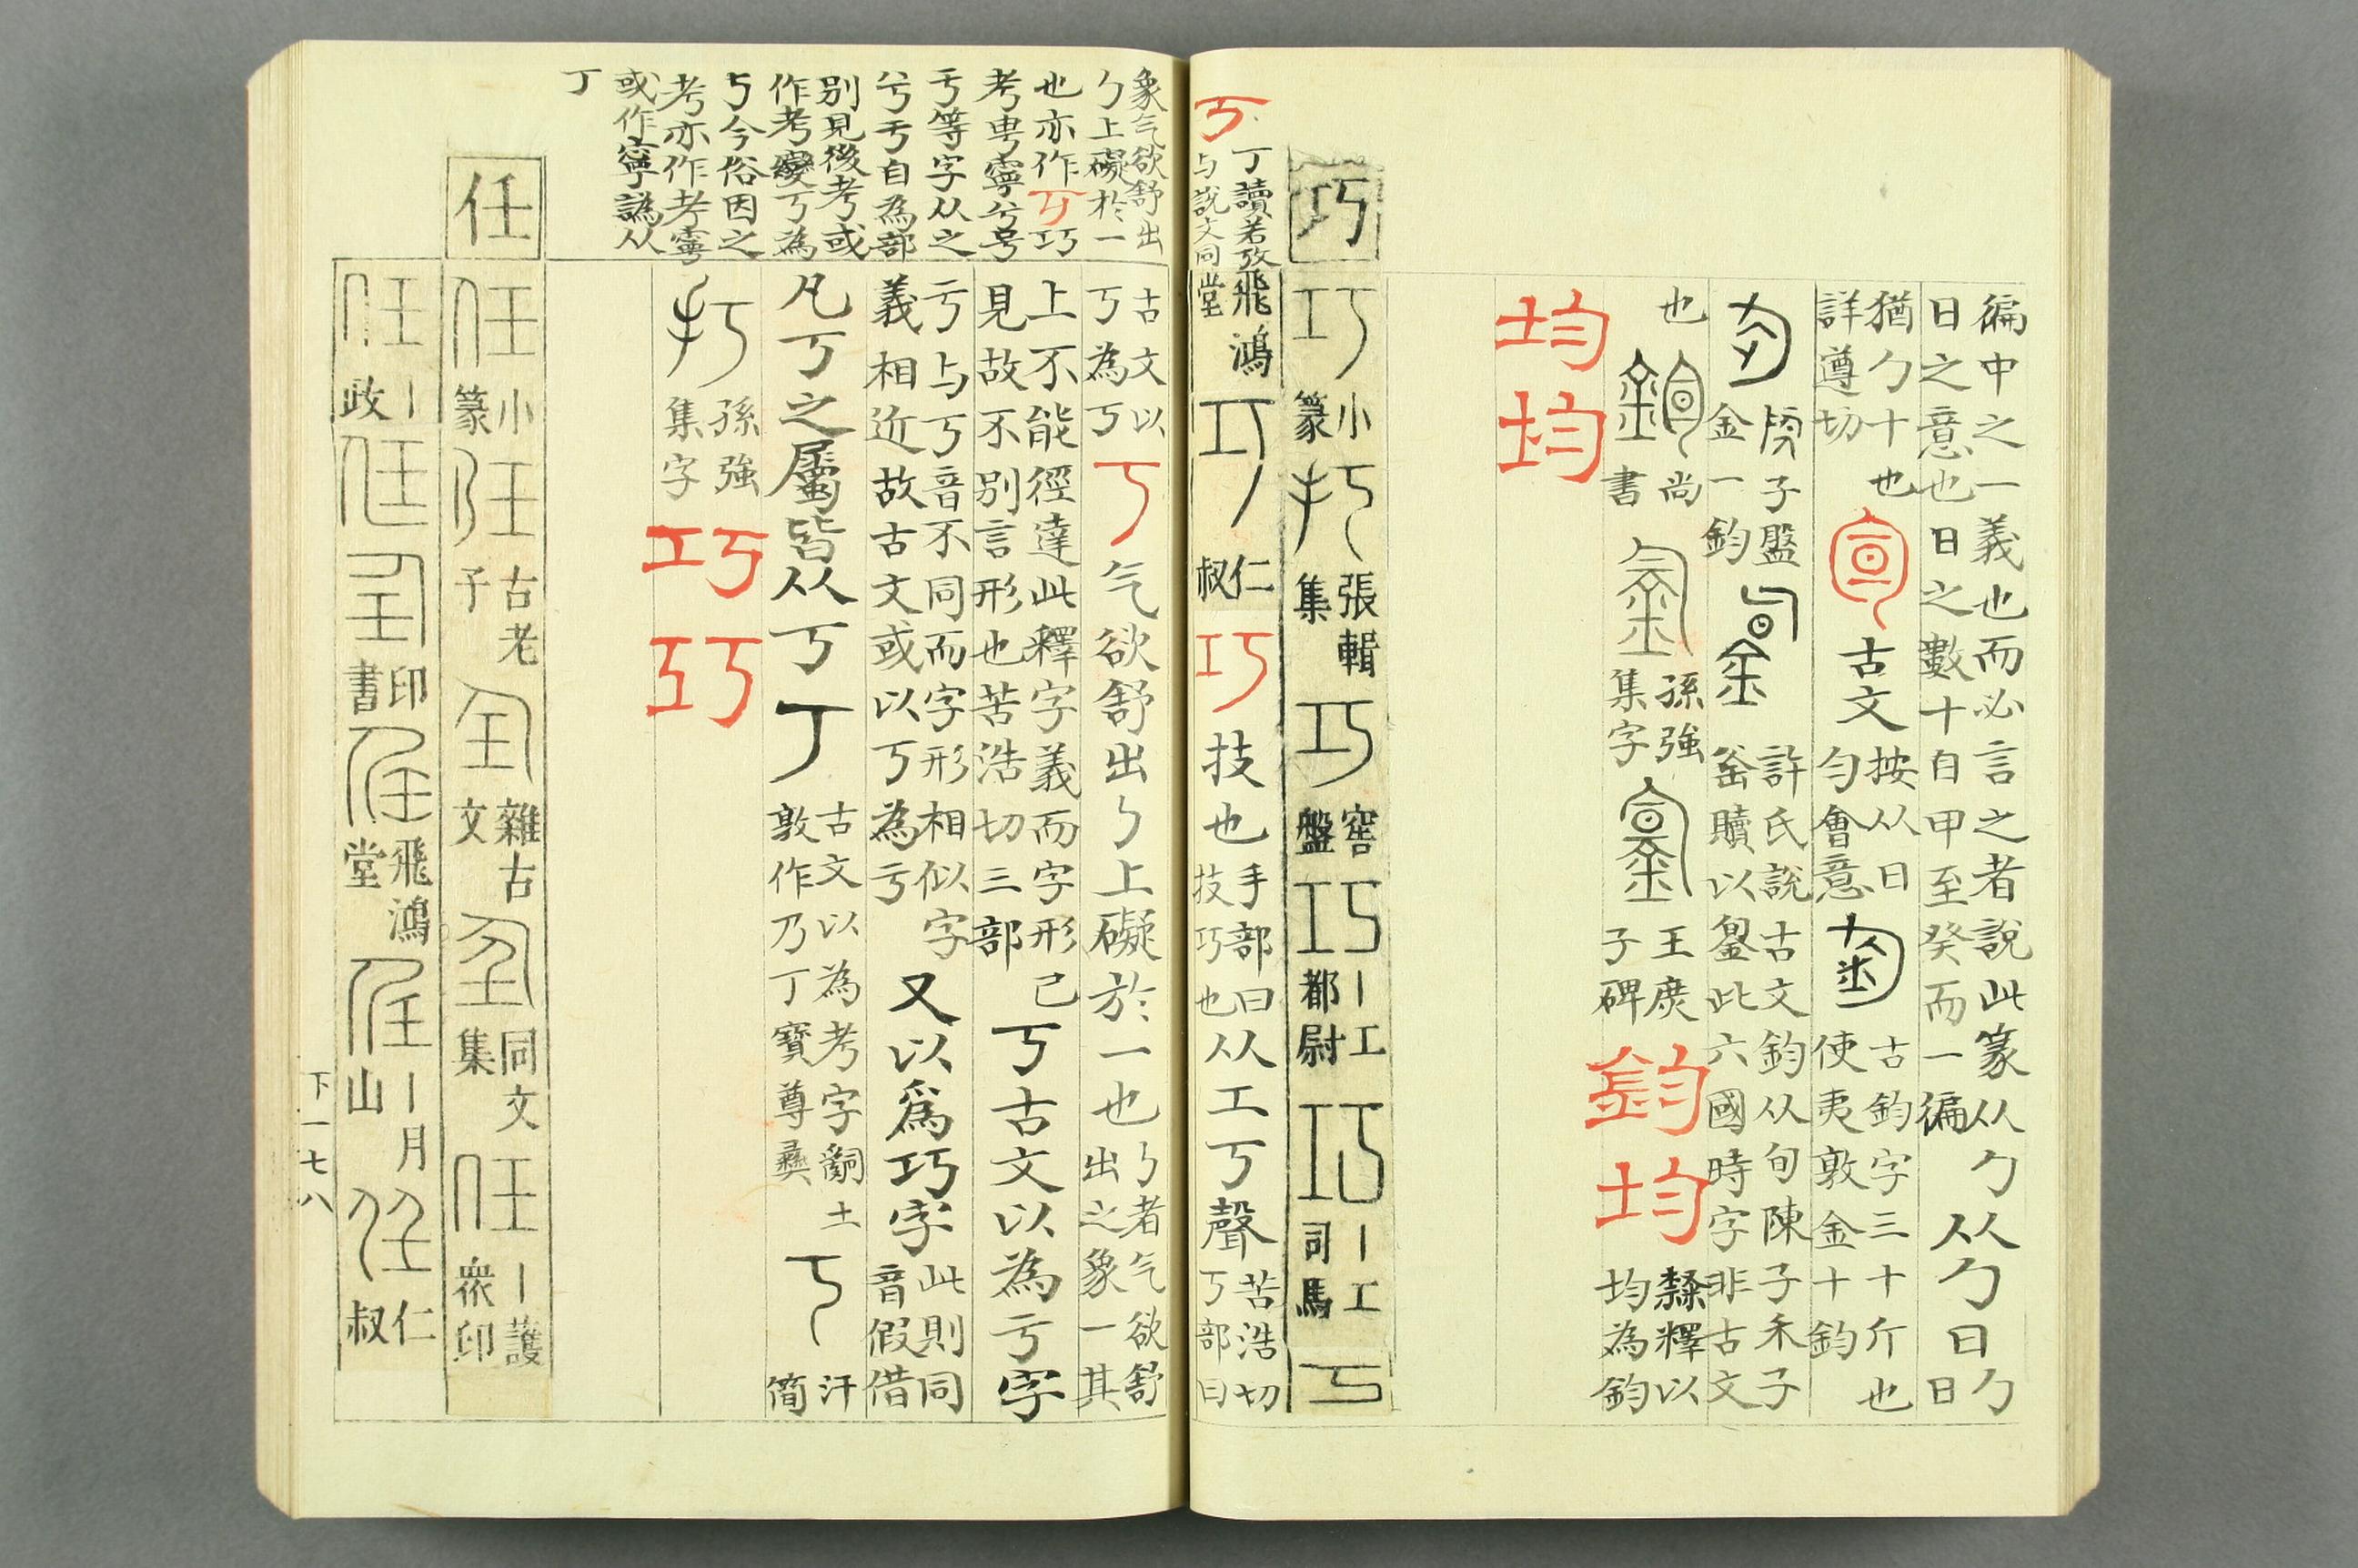 徧中之一義也而必言之者說此篆从勹从勹日勹
日之意也日之數十自甲至癸而一徧日
猶勹十也
詳遵切
古文
按从日
勻會意
古鈞字三十斤也
使夷敦金十鈞
子盤
金一鈞
許氏說古文鈞从旬陳子禾子
釜贖以此六國時字非古文
也
尚
書
孫強
集字
王庶
子碑
鈞
均
隸釋以
均為鈞
均
均
巧
巧
小
篆
張輯
集
巧
窖
盤
巧
丨工
都尉
巧
丨工
司馬
丂
丁讀若攷
与說文同
飛鴻
堂
巧
仁
叔
巧
技也
手部曰
技巧也
从工丂聲
苦浩切
丂部曰
象气欲舒出
勹上礙於一
也亦作丂巧
考甹寧兮号
于等字从之
兮亏自為部
別見後考或
作考變丂為
丂今俗因之
考亦作考寧
或作寧譌从
丁
古文以
丂為丂
丂
气欲舒出勹上礙於一也
勹者气欲舒
出之象一其
上不能徑達此釋字義而字形已
見故不別言形也苦浩切三部
丂古文以為亏字
亏与丂音不同而字形相似字
義相近故古文或以丂為亏
又以為巧字
此則同
音假借
凡丂之屬皆从丂
丁
古文以為考字嗣土
敦作乃丁寶尊彝
汗
簡
孫強
集字
巧
巧
任
任
小
篆
古老
子
雜古
文
同文
集
任
丨護
眾印
任
丨
政
印
書
飛鴻
堂
丨月
山
仁
叔
下一七八